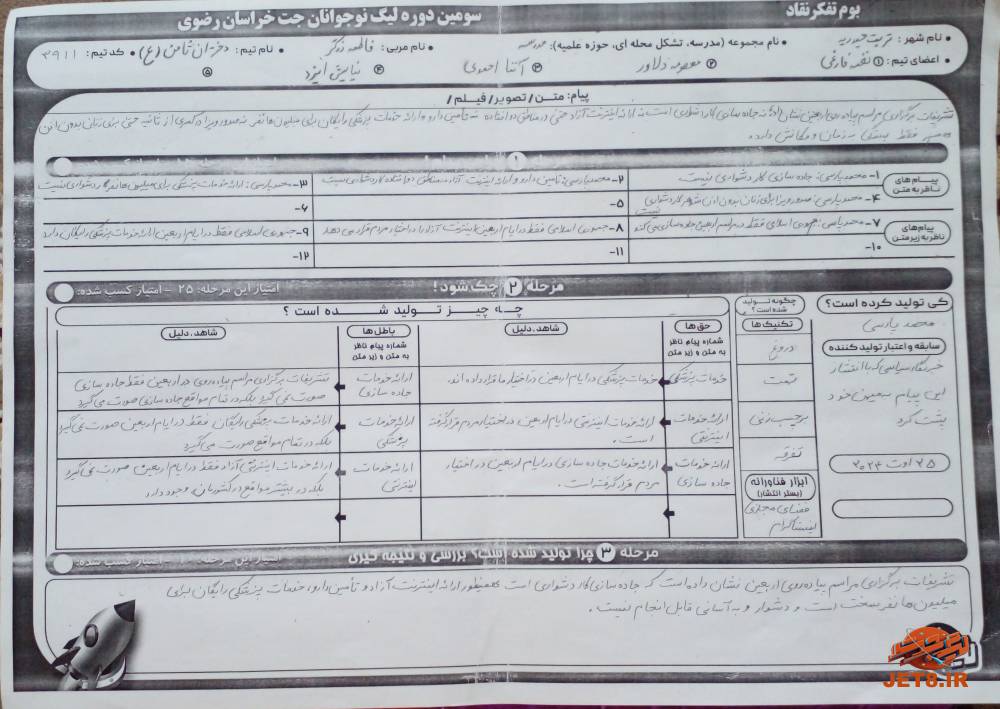 بوم تفکر نقاد
سومین دوره لیگ نوجوانان جت خراسان رضوی
• نام شهر: تربت حیدریه • نام مجموعه (مدرسه، تشکل محله ای، حوزه علمیه): مدرسه • نام مربی: فاطمه ذاکر • نام تیم: دختران ثامن (ع) • کد تیم: ۳۹۱۱
• اعضای تیم: ۱ نغمه فارغی ۲ معصومه دلاور ۳ آتنا احمدی ۴ نیایش ایزد ۵
پیام: متن / تصویر / فیلم /
تشریفات برگزاری مراسم پیاده روی اربعین نشان داد نه جاده سازی کار دشواری است نه ارائه اینترنت آزاد حتی در مناطق دور افتاده نه تأمین دارو و ارائه خدمات پزشکی رایگان برای میلیون ها نفر نه صدور ویزا حتی برای زنان بدون اذن
همسر فقط بستگی به زمان و مکانش دارد.
پیام های ناظر به متن
۱- محمد پارسی: جاده سازی کار دشواری نیست
۲- محمد پارسی: تامین دارو و ارائه اینترنت آزاد در مناطق دور افتاده کار دشواری نیست
۳- محمد پارسی: ارائه خدمات پزشکی برای میلیون ها نفر کار دشواری نیست
۴- محمد پارسی: صدور ویزا برای زنان بدون اذن شوهر کار دشواری نیست
۵-
۶-
پیام های ناظر به زیر متن
۷- محمد پارسی: جمهوری اسلامی فقط در مراسم اربعین جاده سازی می کند
۸- جمهوری اسلامی فقط در ایام اربعین اینترنت آزاد را در اختیار مردم قرار می دهد
۹- جمهوری اسلامی فقط در ایام اربعین ارائه خدمات پزشکی رایگان دارد
۱۰-
۱۱-
۱۲-
مرحله ۲ چک شود!
امتیاز این مرحله: ۲۵ - امتیاز کسب شده:
کی تولید کرده است؟
محمد پارسی
سابقه و اعتبار تولید کننده
خبرنگار سیاسی که با انتشار
این پیام سعی خود
پشت کرد
۲۵ اوت ۲۰۲۴
چگونه تولید شده است؟
تکنیک ها
دروغ
تهمت
برچسب زنی
تفرقه
ابزار فناورانه (بستر انتشار)
فضای مجازی
اینستاگرام
چه چیز تولید شده است؟
حق ها
شماره پیام ناظر به متن و زیر متن
شاهد، دلیل
باطل ها
شماره پیام ناظر به متن و زیر متن
شاهد، دلیل
خدمات پزشکی
خدمات پزشکی در ایام اربعین در اختیار ما قرار داده اند.
ارائه خدمات جاده سازی
تشریفات برگزاری مراسم پیاده روی در اربعین فقط جاده سازی
صورت نمی گیرد بلکه در تمام مواقع جاده سازی صورت می گیرد
ارائه خدمات اینترنتی
ارائه خدمات اینترنتی در ایام اربعین در اختیار مردم قرار گرفته
است.
ارائه خدمات پزشکی
ارائه خدمات پزشکی رایگان فقط در ایام اربعین صورت نمی گیرد
بلکه در تمام مواقع صورت می گیرد
ارائه خدمات جاده سازی
ارائه خدمات جاده سازی در ایام اربعین در اختیار
مردم قرار گرفته است.
ارائه خدمات اینترنتی
ارائه خدمات اینترنتی آزاد فقط در ایام اربعین صورت نمی گیرد
بلکه در بیشتر مواقع در کشورمان وجود دارد
مرحله ۳ چرا تولید شده است؟ بررسی و نتیجه گیری
امتیاز این مرحله: ۱۰ - امتیاز کسب شده:
تشریفات برگزاری مراسم پیاده روی اربعین نشان داده است که جاده سازی کار دشواری است همینطور ارائه اینترنت آزاد و تأمین دارو، خدمات پزشکی رایگان برای
میلیون ها نفر سخت است و دشوار و به آسانی قابل انجام نیست.
JET8.IR